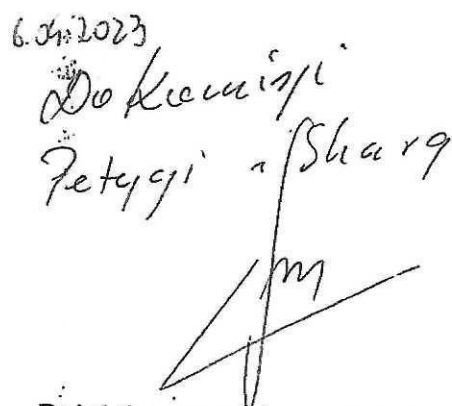 6.04.2023
Do Komisji
Petycji i Skarg